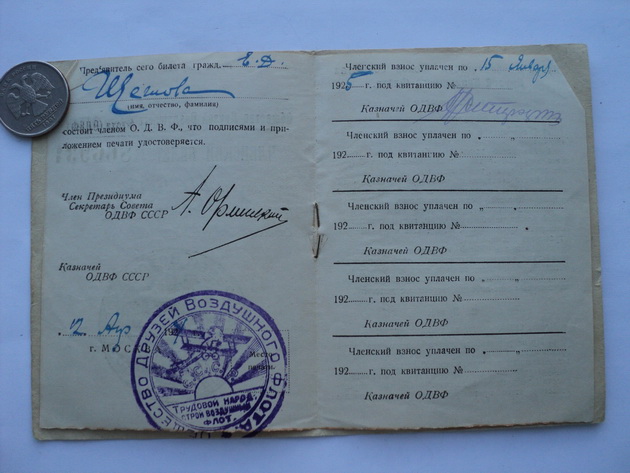 Предъявитель сего билета гражд. Е. Д.
(имя, отчество, фамилия)
состоит членом О. Д. В. Ф., что подписями и при-
ложением печати удостоверяется.
Член Президиума
Секретарь Совета
ОДВФ СССР
Казначей
ОДВФ СССР
12 Апр 192
г. МОСК
Место
печати.
ОБЩЕСТВО ДРУЗЕЙ ВОЗДУШНОГО ФЛОТА
ТРУДОВОЙ НАРОД,
СТРОЙ ВОЗДУШНЫЙ
ФЛОТ.
Членский взнос уплачен по „15 Января
1925 г. под квитанцию №
Казначей ОДВФ
Членский взнос уплачен по „ “
192 г. под квитанцию №
Казначей ОДВФ
Членский взнос уплачен по „ “
192 г. под квитанцию №
Казначей ОДВФ
Членский взнос уплачен по „ “
192 г. под квитанцию №
Казначей ОДВФ
Членский взнос уплачен по „ “
192 г. под квитанцию №
Казначей ОДВФ